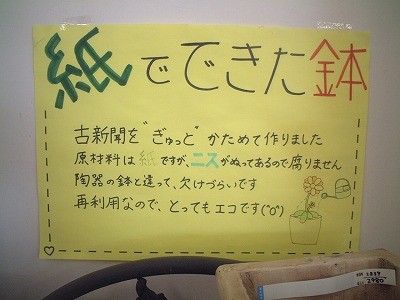 紙でできた鉢
古新聞を"ぎゅっと"かためて作りました
原材料は紙ですが、ニスがぬってあるので腐りません
陶器の鉢と違って、欠けづらいです
再利用なので、とってもエコです(^o^)
2980